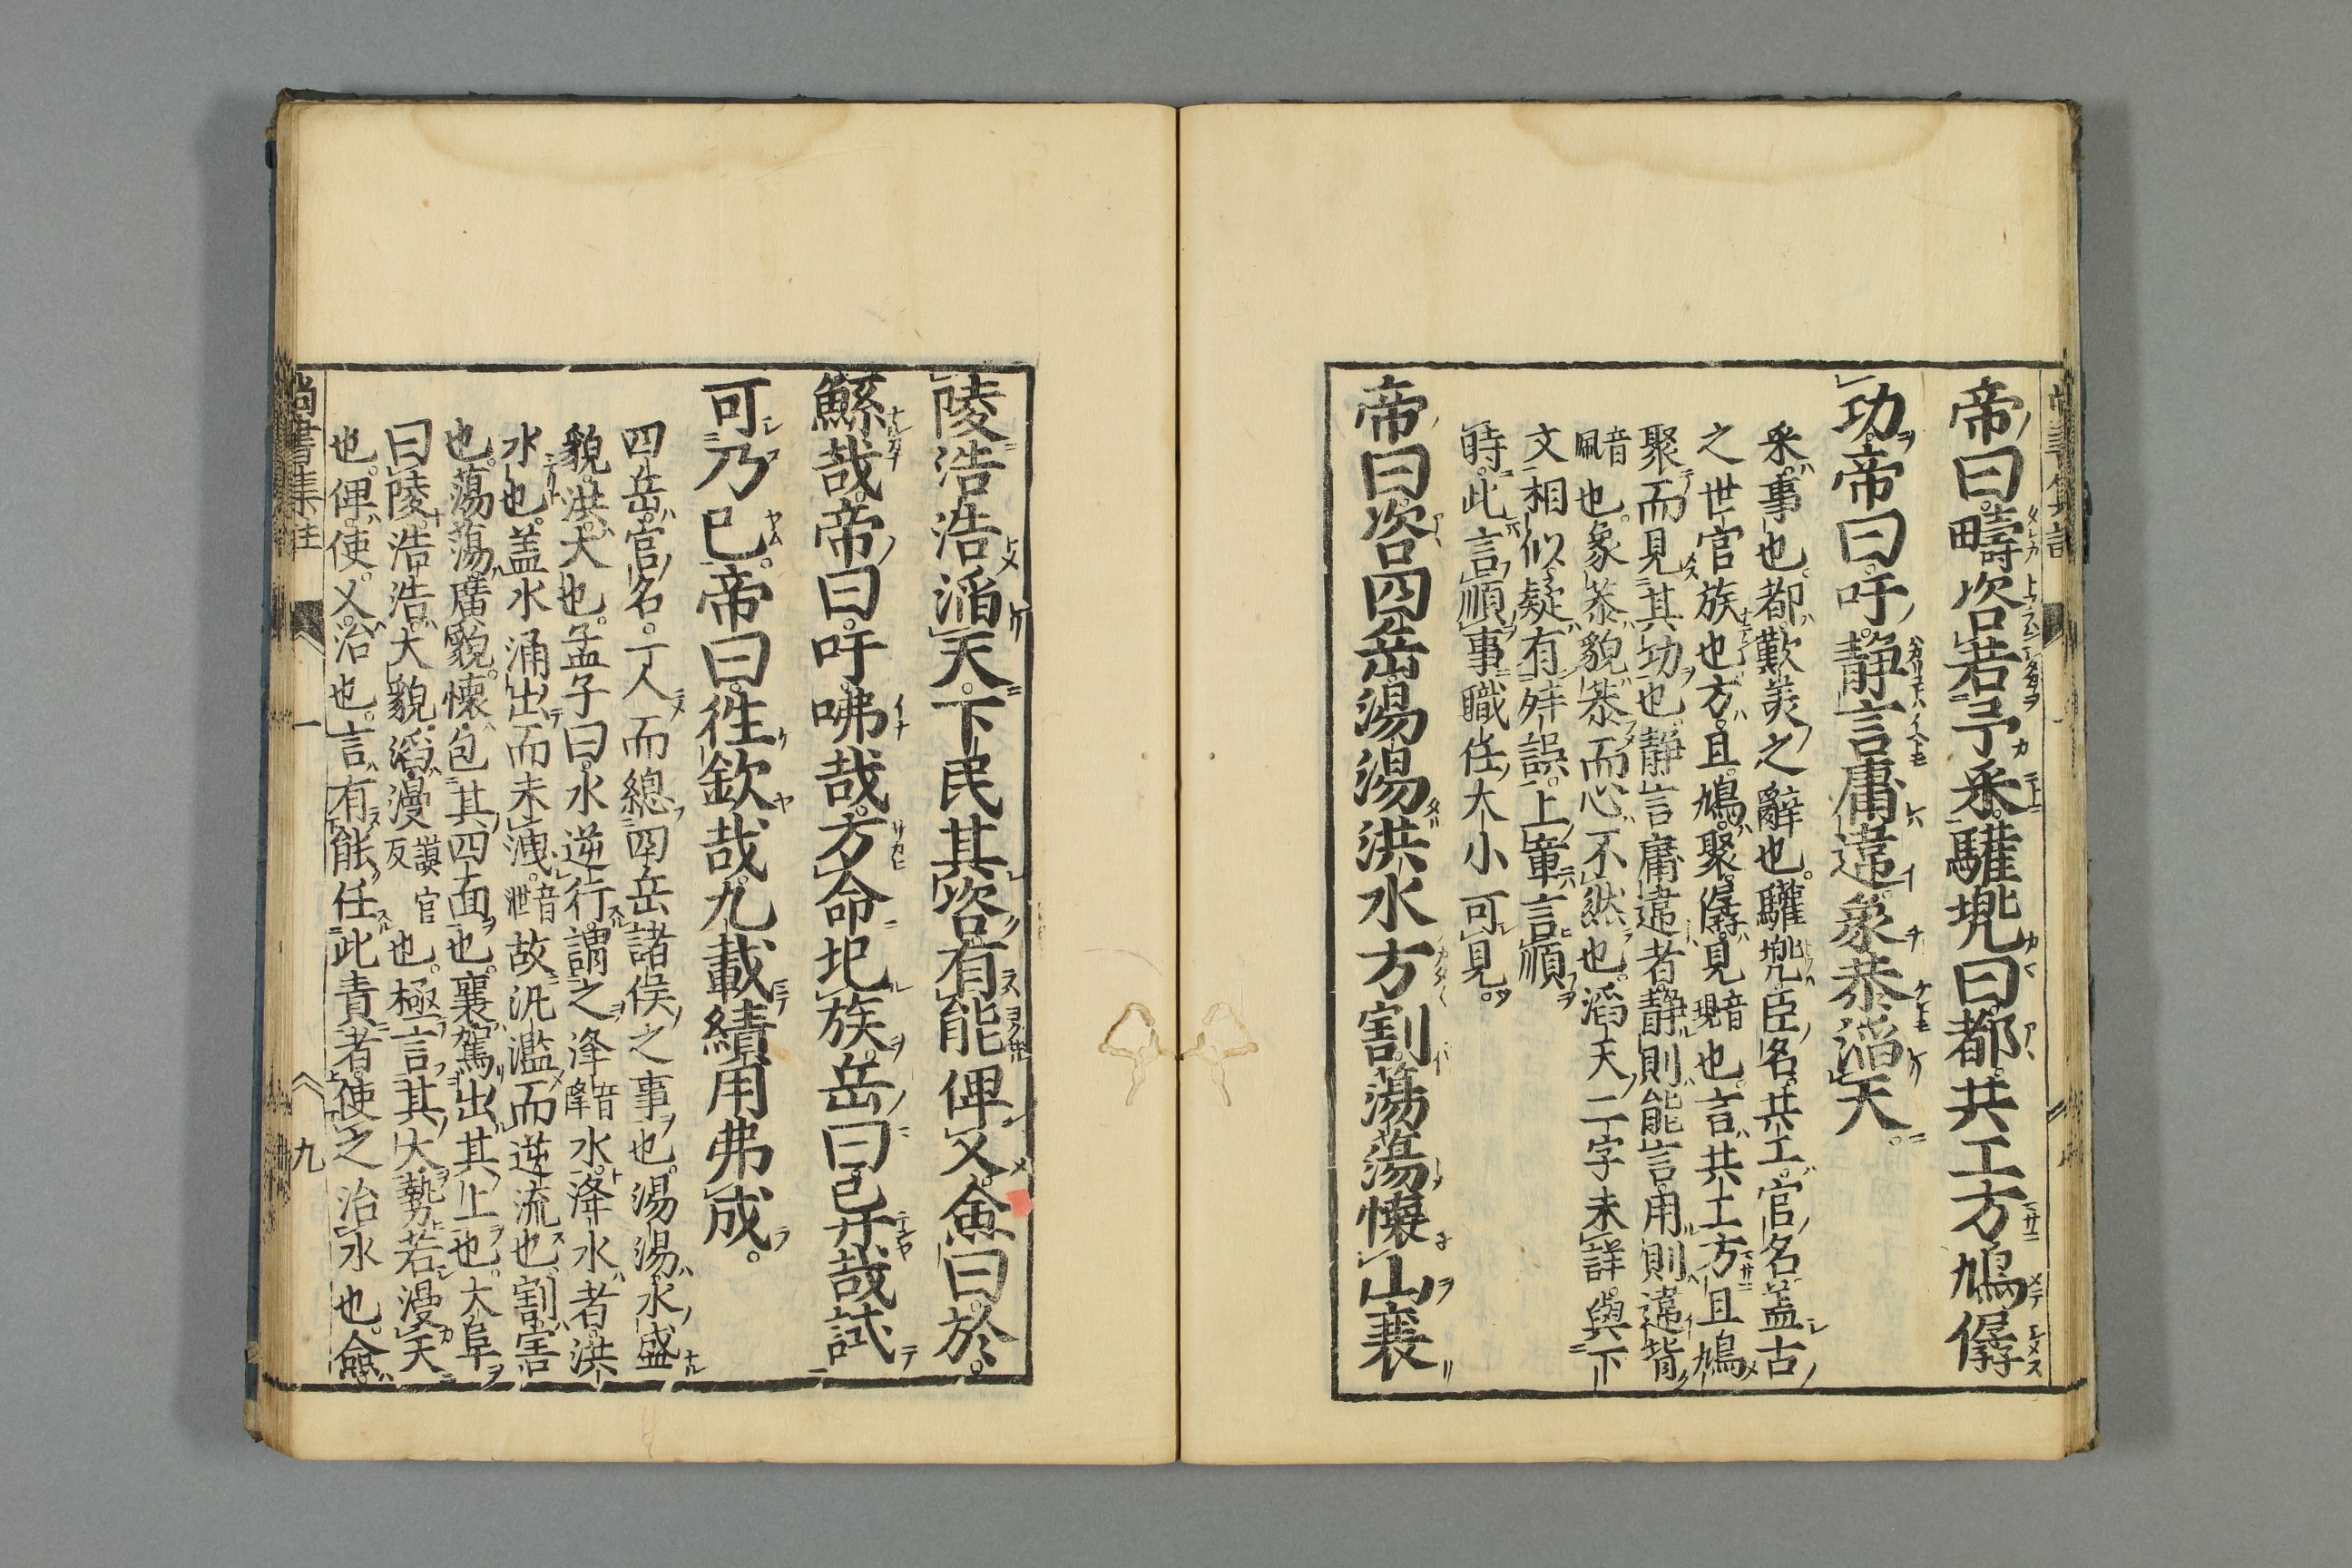 帝曰。疇咨若予采。驩兜曰。都。共工方鳩僝
功。帝曰。吁。靜言庸違。象恭滔天。
采。事也。都。歎美之辭也。驩兜。臣名。共工。官名。蓋古
之世官族也。方。且。鳩。聚。僝。見音現也。言共工方且鳩
聚而見其功也。靜言庸違者。靜則能言。用則違背
音佩也。象恭。貌恭而心不然也。滔天二字未詳。與下
文相似。疑有舛誤。上章言順
時。此言順事。職任大小可見。
帝曰。咨四岳。湯湯洪水方割。蕩蕩懷山襄
陵。浩浩滔天。下民其咨。有能俾乂。僉曰。於。
鯀哉。帝曰。吁。咈哉。方命圮族。岳曰。异哉。試
可乃已。帝曰。往欽哉。九載績用弗成。
四岳。官名。一人而總四岳諸侯之事也。湯湯。水盛
貌。洪。大也。孟子曰。水逆行。謂之洚音降水。洚水者。洪
水也。蓋水涌出而未洩。音泄故汎濫而逆流也。割。害
也。蕩蕩。廣貌。懷。包其四面也。襄。駕出其上也。大阜
曰陵。浩浩。大貌。滔。漫謨官反也。極言其大。勢若漫天
也。俾。使。乂。治也。言有能任此責者。使之治水也。僉。
尚書集註 一 九